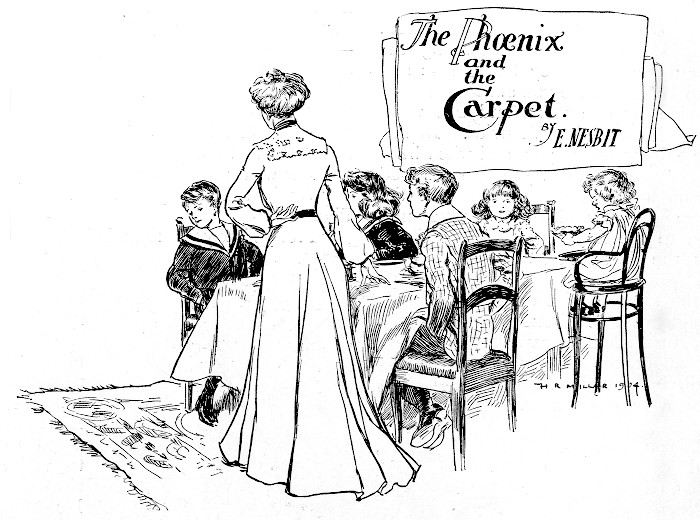 The Phœnix
and
the
Carpet.
BY E. NESBIT
H R MILLAR 1904.